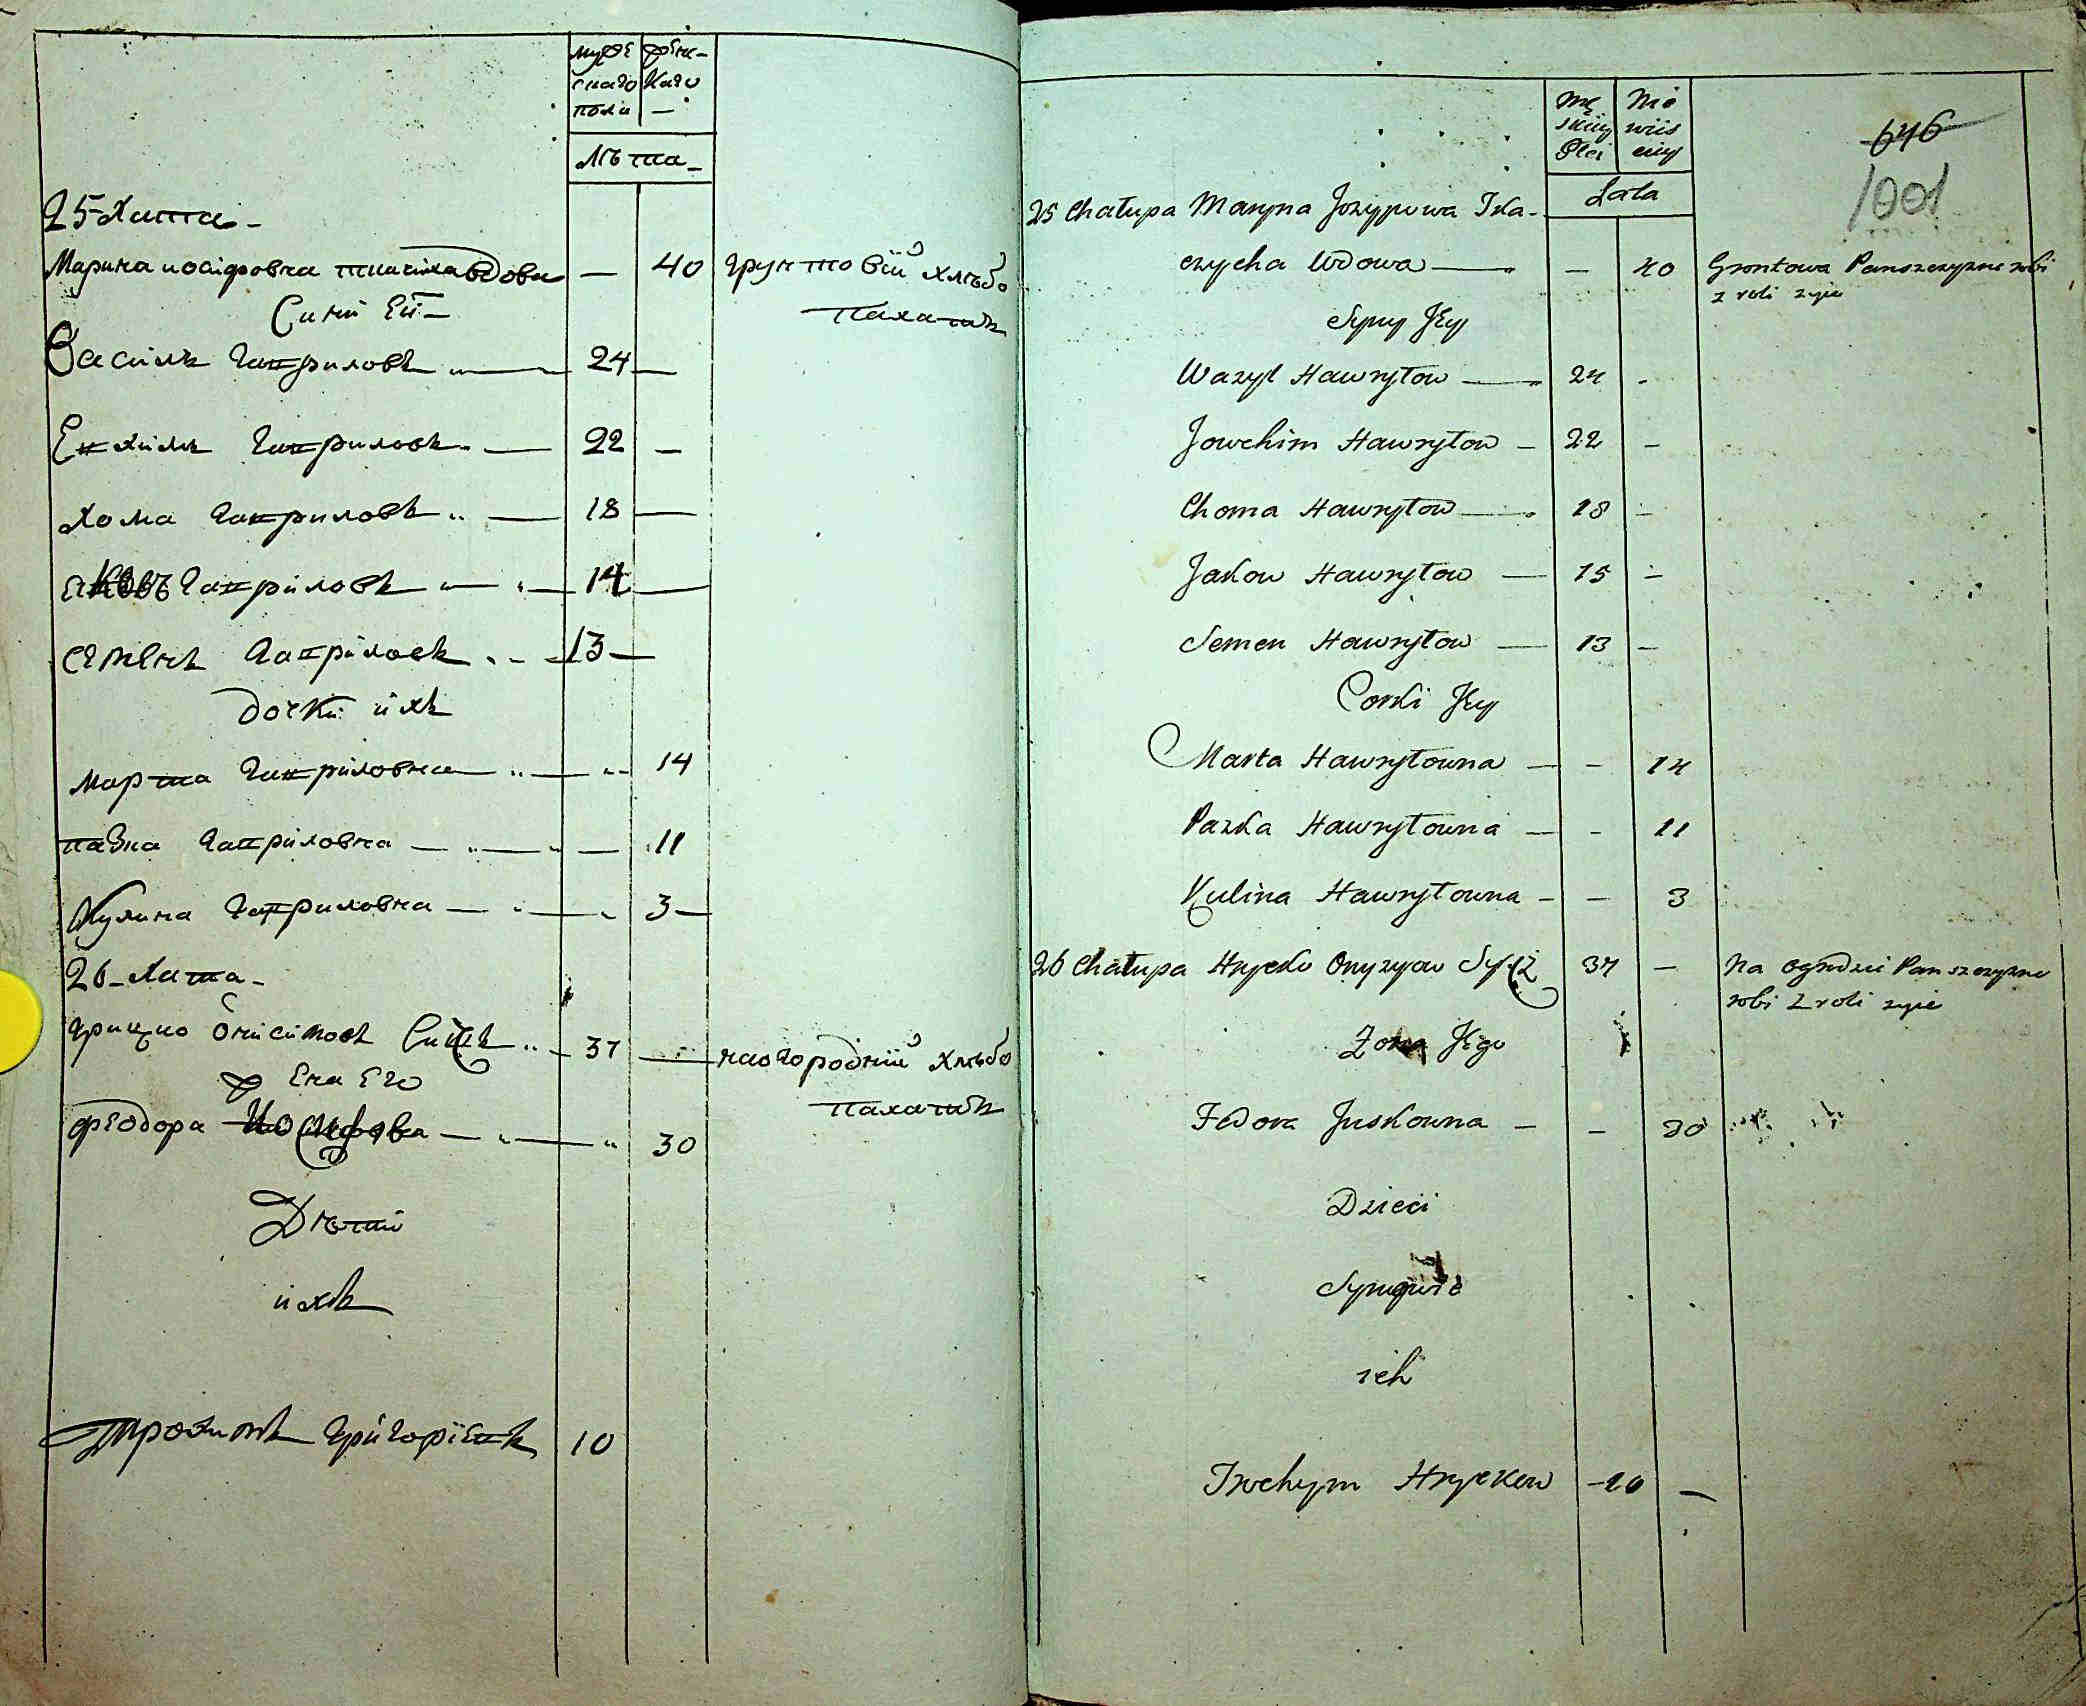 мужескаго полу
женскаго
лѣта
25 Хата
Марина иосифовна ткачиха вдова — 40 грунтовій хлѣбо
Сини Еи
пахатъ
Василь гавриловъ 24 —
Евхимъ гавриловъ 22 —
Хома гавриловъ 18 —
Яковъ гавріловъ 14 —
семенъ гавріловъ 13 —
дочки ихъ
марта гавріловна 14
пазка гавріловна — 11
Кулина гавриловна — 3 —
26 хата
грицко онисимовъ 37 — наогородній хлѣбо
жена Его
пахатъ
феодора Иосифова — 30
Дѣти
ихъ
трохимъ григоріевъ 10
Męskiey Płci
Niewiesciey
Lata
646
1001
25 Chałupa Maryna Jozypowa Tka-
czycha Wdowa — — 40 Grontowa Panszczyzne robi
z roli zyie
Syny Jey
Wazyl Hawryłow — 24 -
Jowchim Hawryłow — 22 —
Choma Hawryłow — 18 —
Jakow Hawryłow — 15 —
Semen Hawryłow — 13 —
Corki Jey
Marta Hawryłowna — — 14
Pazka Hawryłowna — — 11
Kulina Hawryłowna — — 3
26 Chałupa Hrycko Onyzyow 37 — Na ogrodzei Panszczyzne
robi z roli zyie
Zona Jego
Fedora Juskowna — — 30
Dzieci
ich
Trochym Hryckow — 10 —